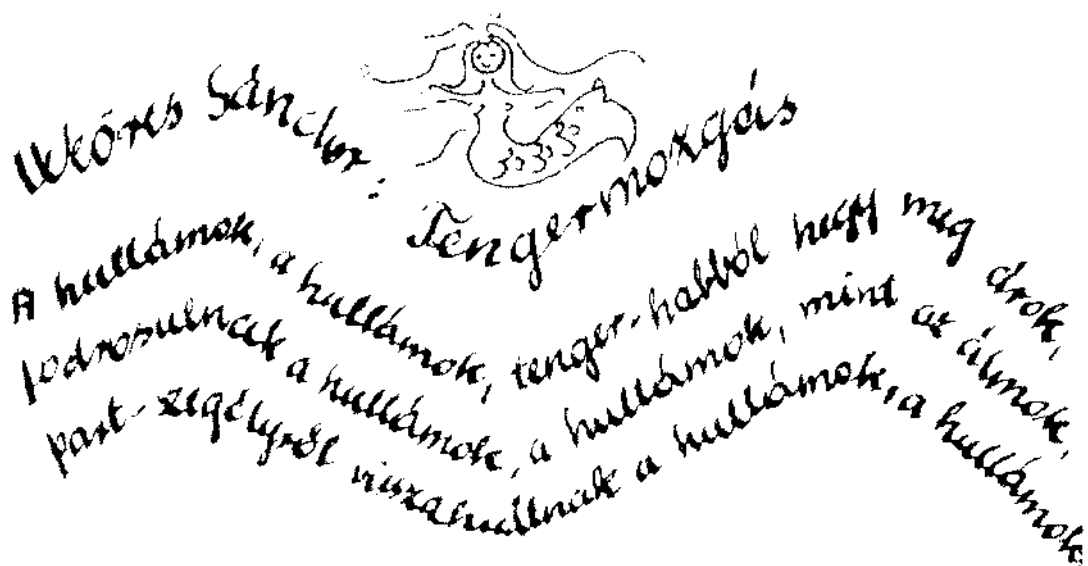 Weöres Sándor:
Tengermozgás
A hullámok, a hullámok, tenger-habból hegy meg árok,
podrosulnak a hullámok, a hullámok, mint az álmok,
part-szegélyről visszahullnak a hullámok, a hullámok